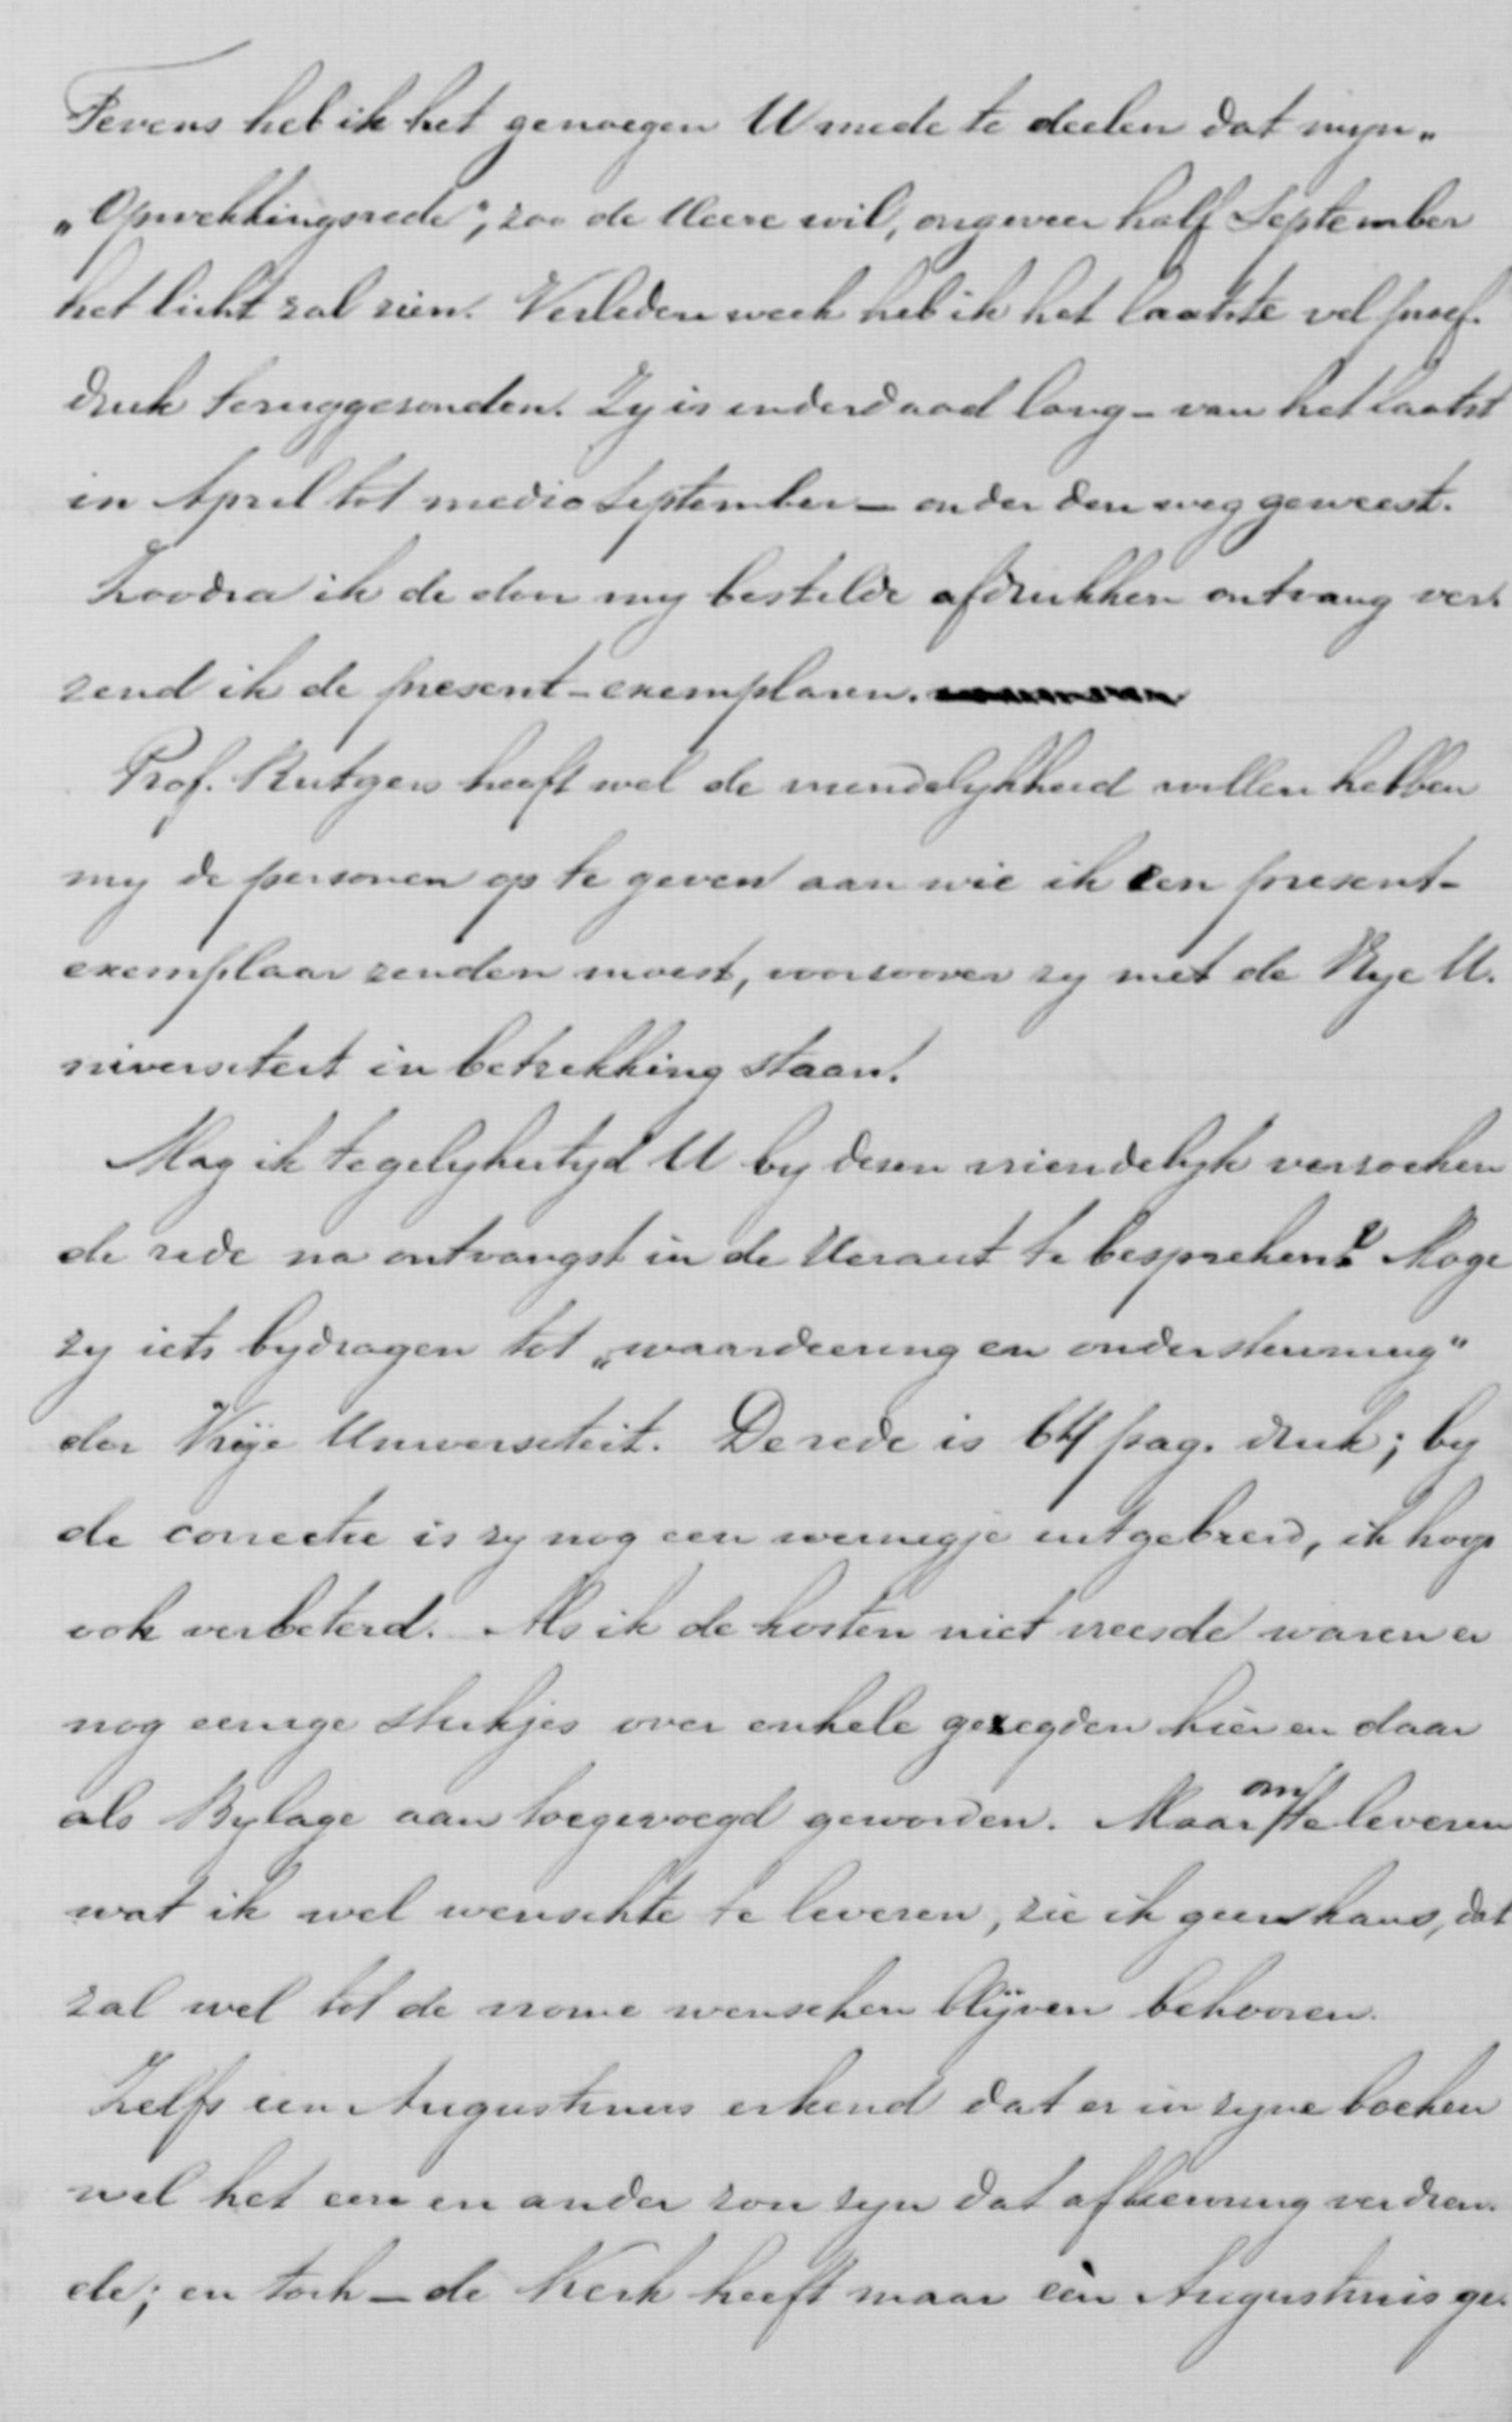 Tevens heb ik het genoegen U mede te deelen dat myn „
„Opwekkingsrede", zoo de Heere wil, ongeveer half September
het licht zal zien. Verleden week heb ik het laatste vel proef-
druk teruggezonden. Zy is inderdaad lang – van het laatst
in April tot medio September – onder den weg geweest.
Zoodra ik de door my bestelde afdrukken ontvang ver-
zend ik de present-exemplaren.
Prof. Rutgers heeft wel de vriendelykheid willen hebben
my de personen op te geven aan wie ik een present-
exemplaar zenden moest, voorzoover zy met de Vrye U-
niversiteit in betrekking staan.
Mag ik tegelykertyd U by dezen vriendelyk verzoeken
de rede na ontvangst in de Heraut te bespreken? Moge
zy iets bydragen tot „waardeering en ondersteuning"
der Vrije Universiteit. De rede is 64 pag. druk; by
de correctie is zy nog een weinigje uitgebreid, ik hoop
ook verbeterd. Als ik de kosten niet vreesde waren er
nog eenige stukjes over enkele gezegden hier en daar
als Bylage aan toegevoegd geworden. Maar om te leveren
wat ik wel wenschte te leveren, zie ik geen kans, dat
zal wel tot de vrome wenschen blijven behooren.
Zelfs een Augustinus erkend dat er in zyne boeken
wel het een en ander zou zyn dat afkeuring verdien-
de; en toch – de Kerk heeft maar één Augustinus ge-